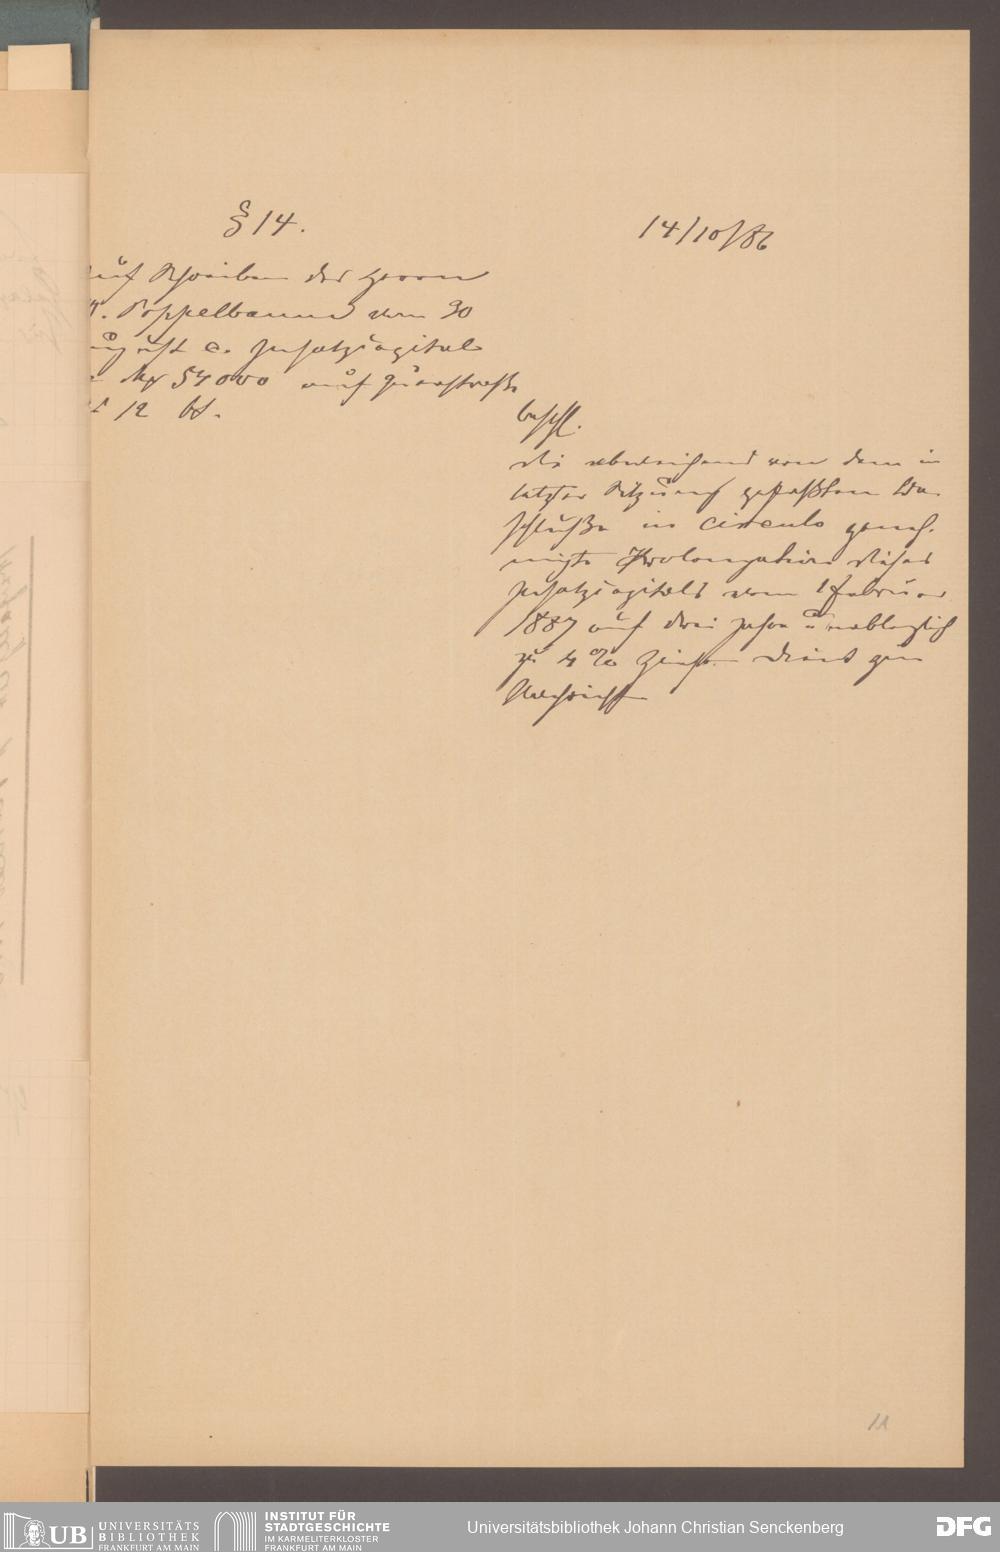 § 14.
14/10/86
auf Schreiben der Herren
Poppelbaum vom 30
August c. Insatzcapital
Mk 54000 auf Querstraße
12 btf.
beschl.
die abweichend von dem in
letzter Sitzung gefaßten Be-
schluße in circulo geneh-
migte Prolongation dieses
Insatzcapitals vom 1 Februar
1887 auf drei Jahre unablöslich
zu 4 % Zinsen dient zur
Nachricht
11
UB UNIVERSITÄTS
BIBLIOTHEK
FRANKFURT AM MAIN
INSTITUT FÜR
STADTGESCHICHTE
IM KARMELITERKLOSTER
FRANKFURT AM MAIN
Universitätsbibliothek Johann Christian Senckenberg
DFG